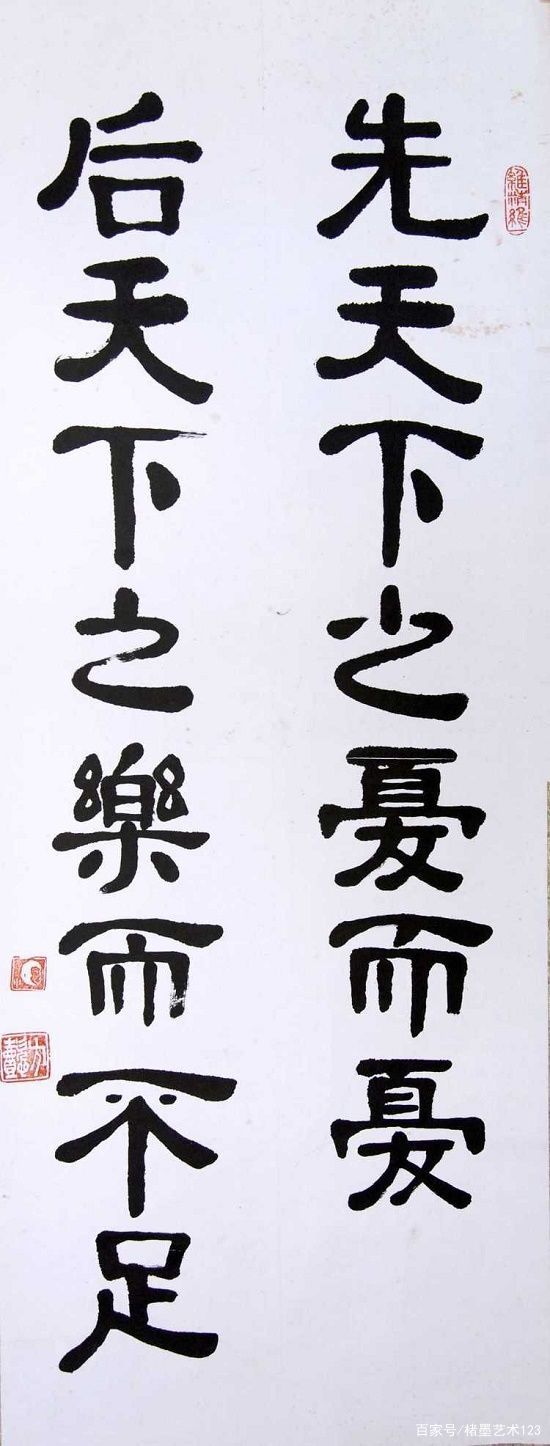 先天下之憂而憂
后天下之樂而不足
百家号/楮墨艺术123